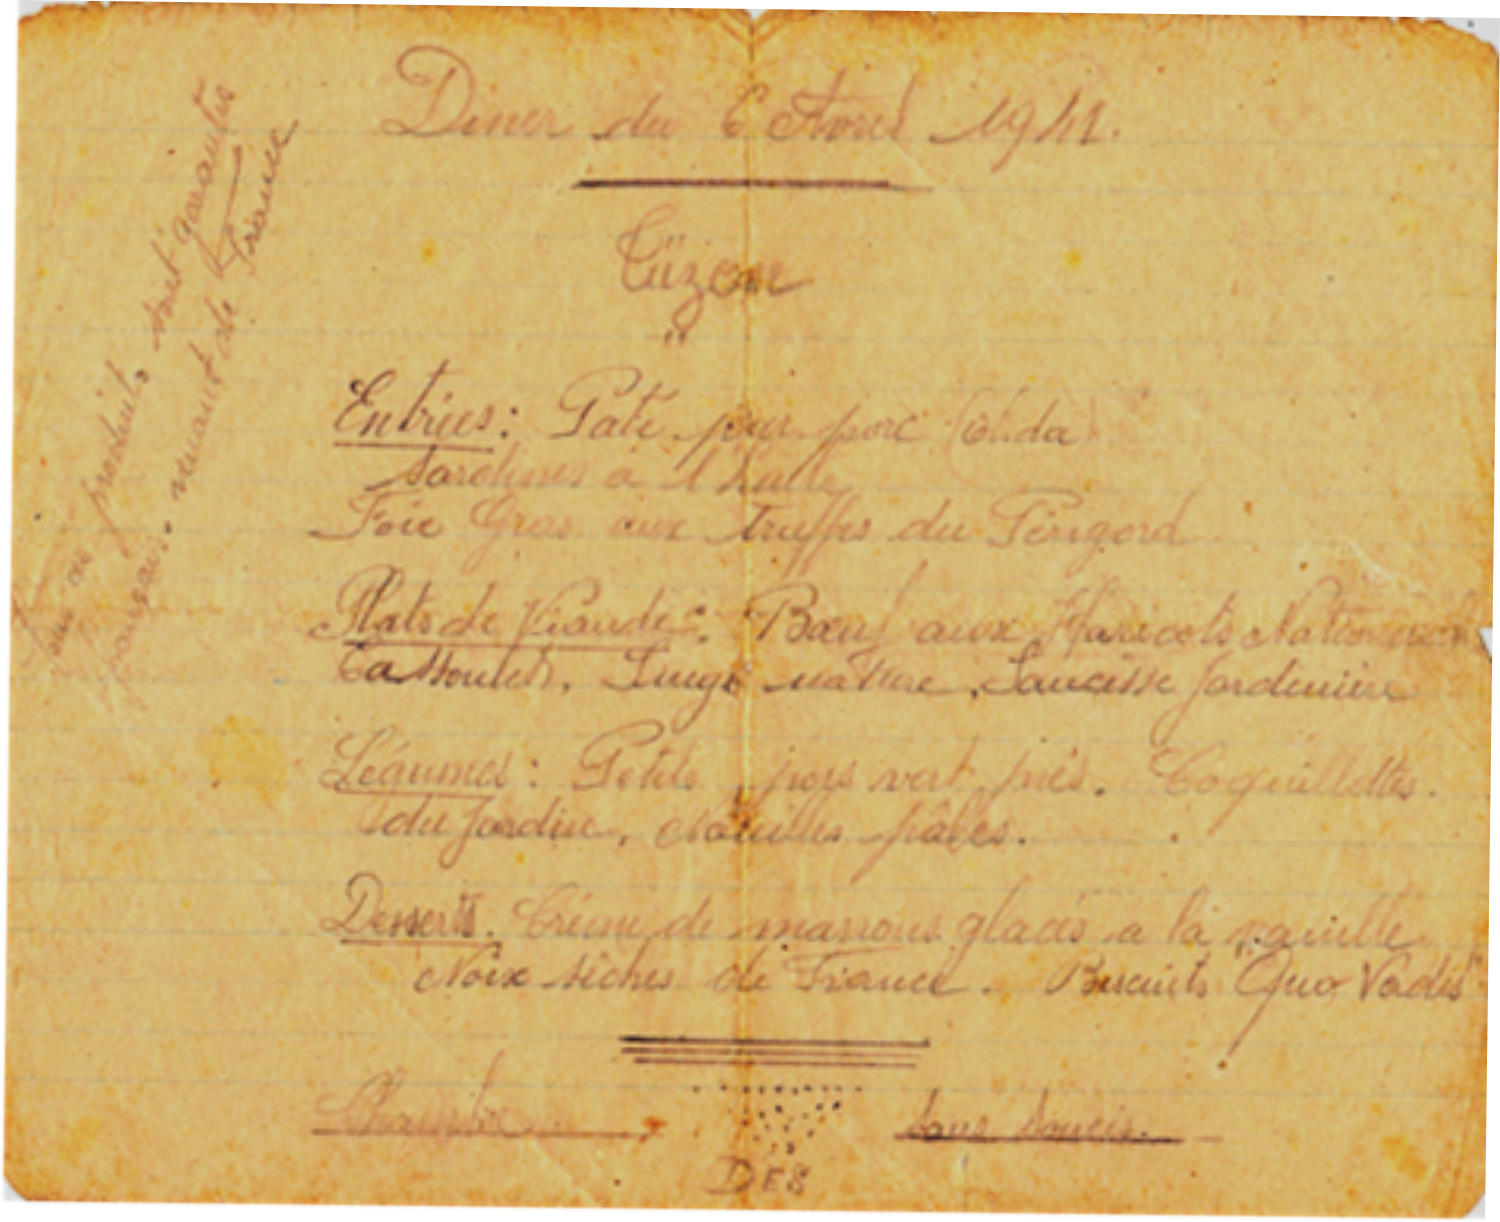 Diner du 6 Avril 1941.
Entrées: Paté pur porc (Olida)
Sardines à l'huile
Foie Gras aux truffes du Périgord
Plats de Viande: Bœuf aux Haricots
Cassoulets, Singe nature, Saucisse Jardinière
Légumes: Petits pois vert prés. Coquillettes.
du Jardin, Nouilles pâles.
Desserts. Crème de marrons glacés a la vanille
Noix sèches de France. Biscuits "Quo Vadis"
Chambre Sans Soucis.
DES
Tous ces produits sont garantis
français. venant de France